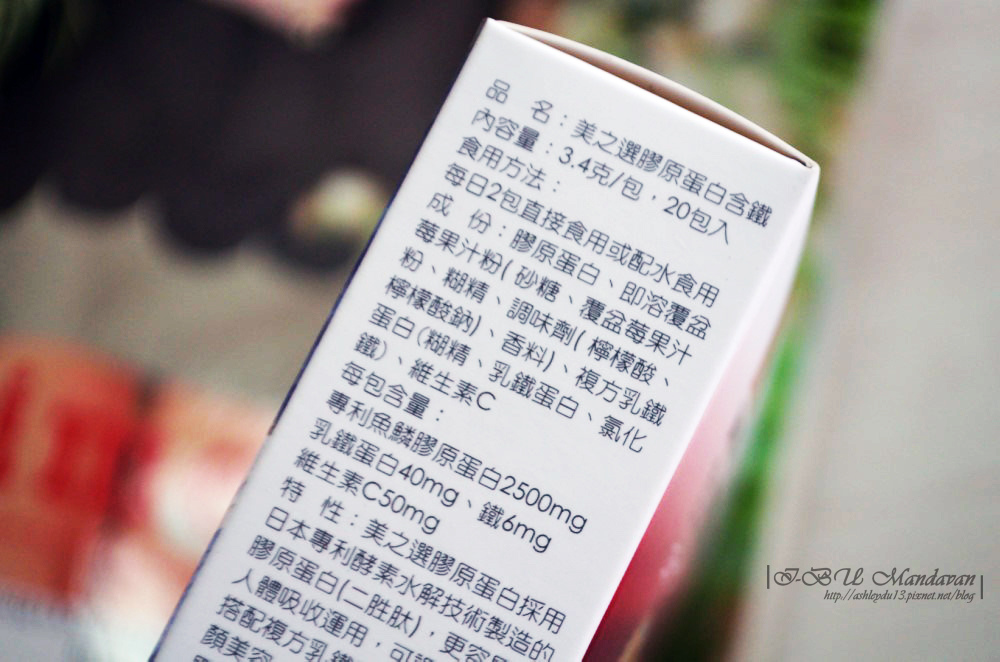 品　名：美之選膠原蛋白含鐵
內容量：3.4克/包，20包入
食用方法：
每日2包直接食用或配水食用
成　份：膠原蛋白、即溶覆盆
莓果汁粉(砂糖、覆盆莓果汁
粉、糊精、調味劑(檸檬酸、
檸檬酸鈉)、香料)、複方乳鐵
蛋白(糊精、乳鐵蛋白、氯化
鐵)、維生素C
每包含量：
專利魚鱗膠原蛋白2500mg
乳鐵蛋白40mg、鐵6mg
維生素C50mg
特　性：美之選膠原蛋白採用
日本專利酵素水解技術製造的
膠原蛋白(二胜肽)，更容
人體吸收運用，可
搭配複方乳鐵
顏美容
I-BU Mandavan
http://ashleydu13.pixnet.net/blog